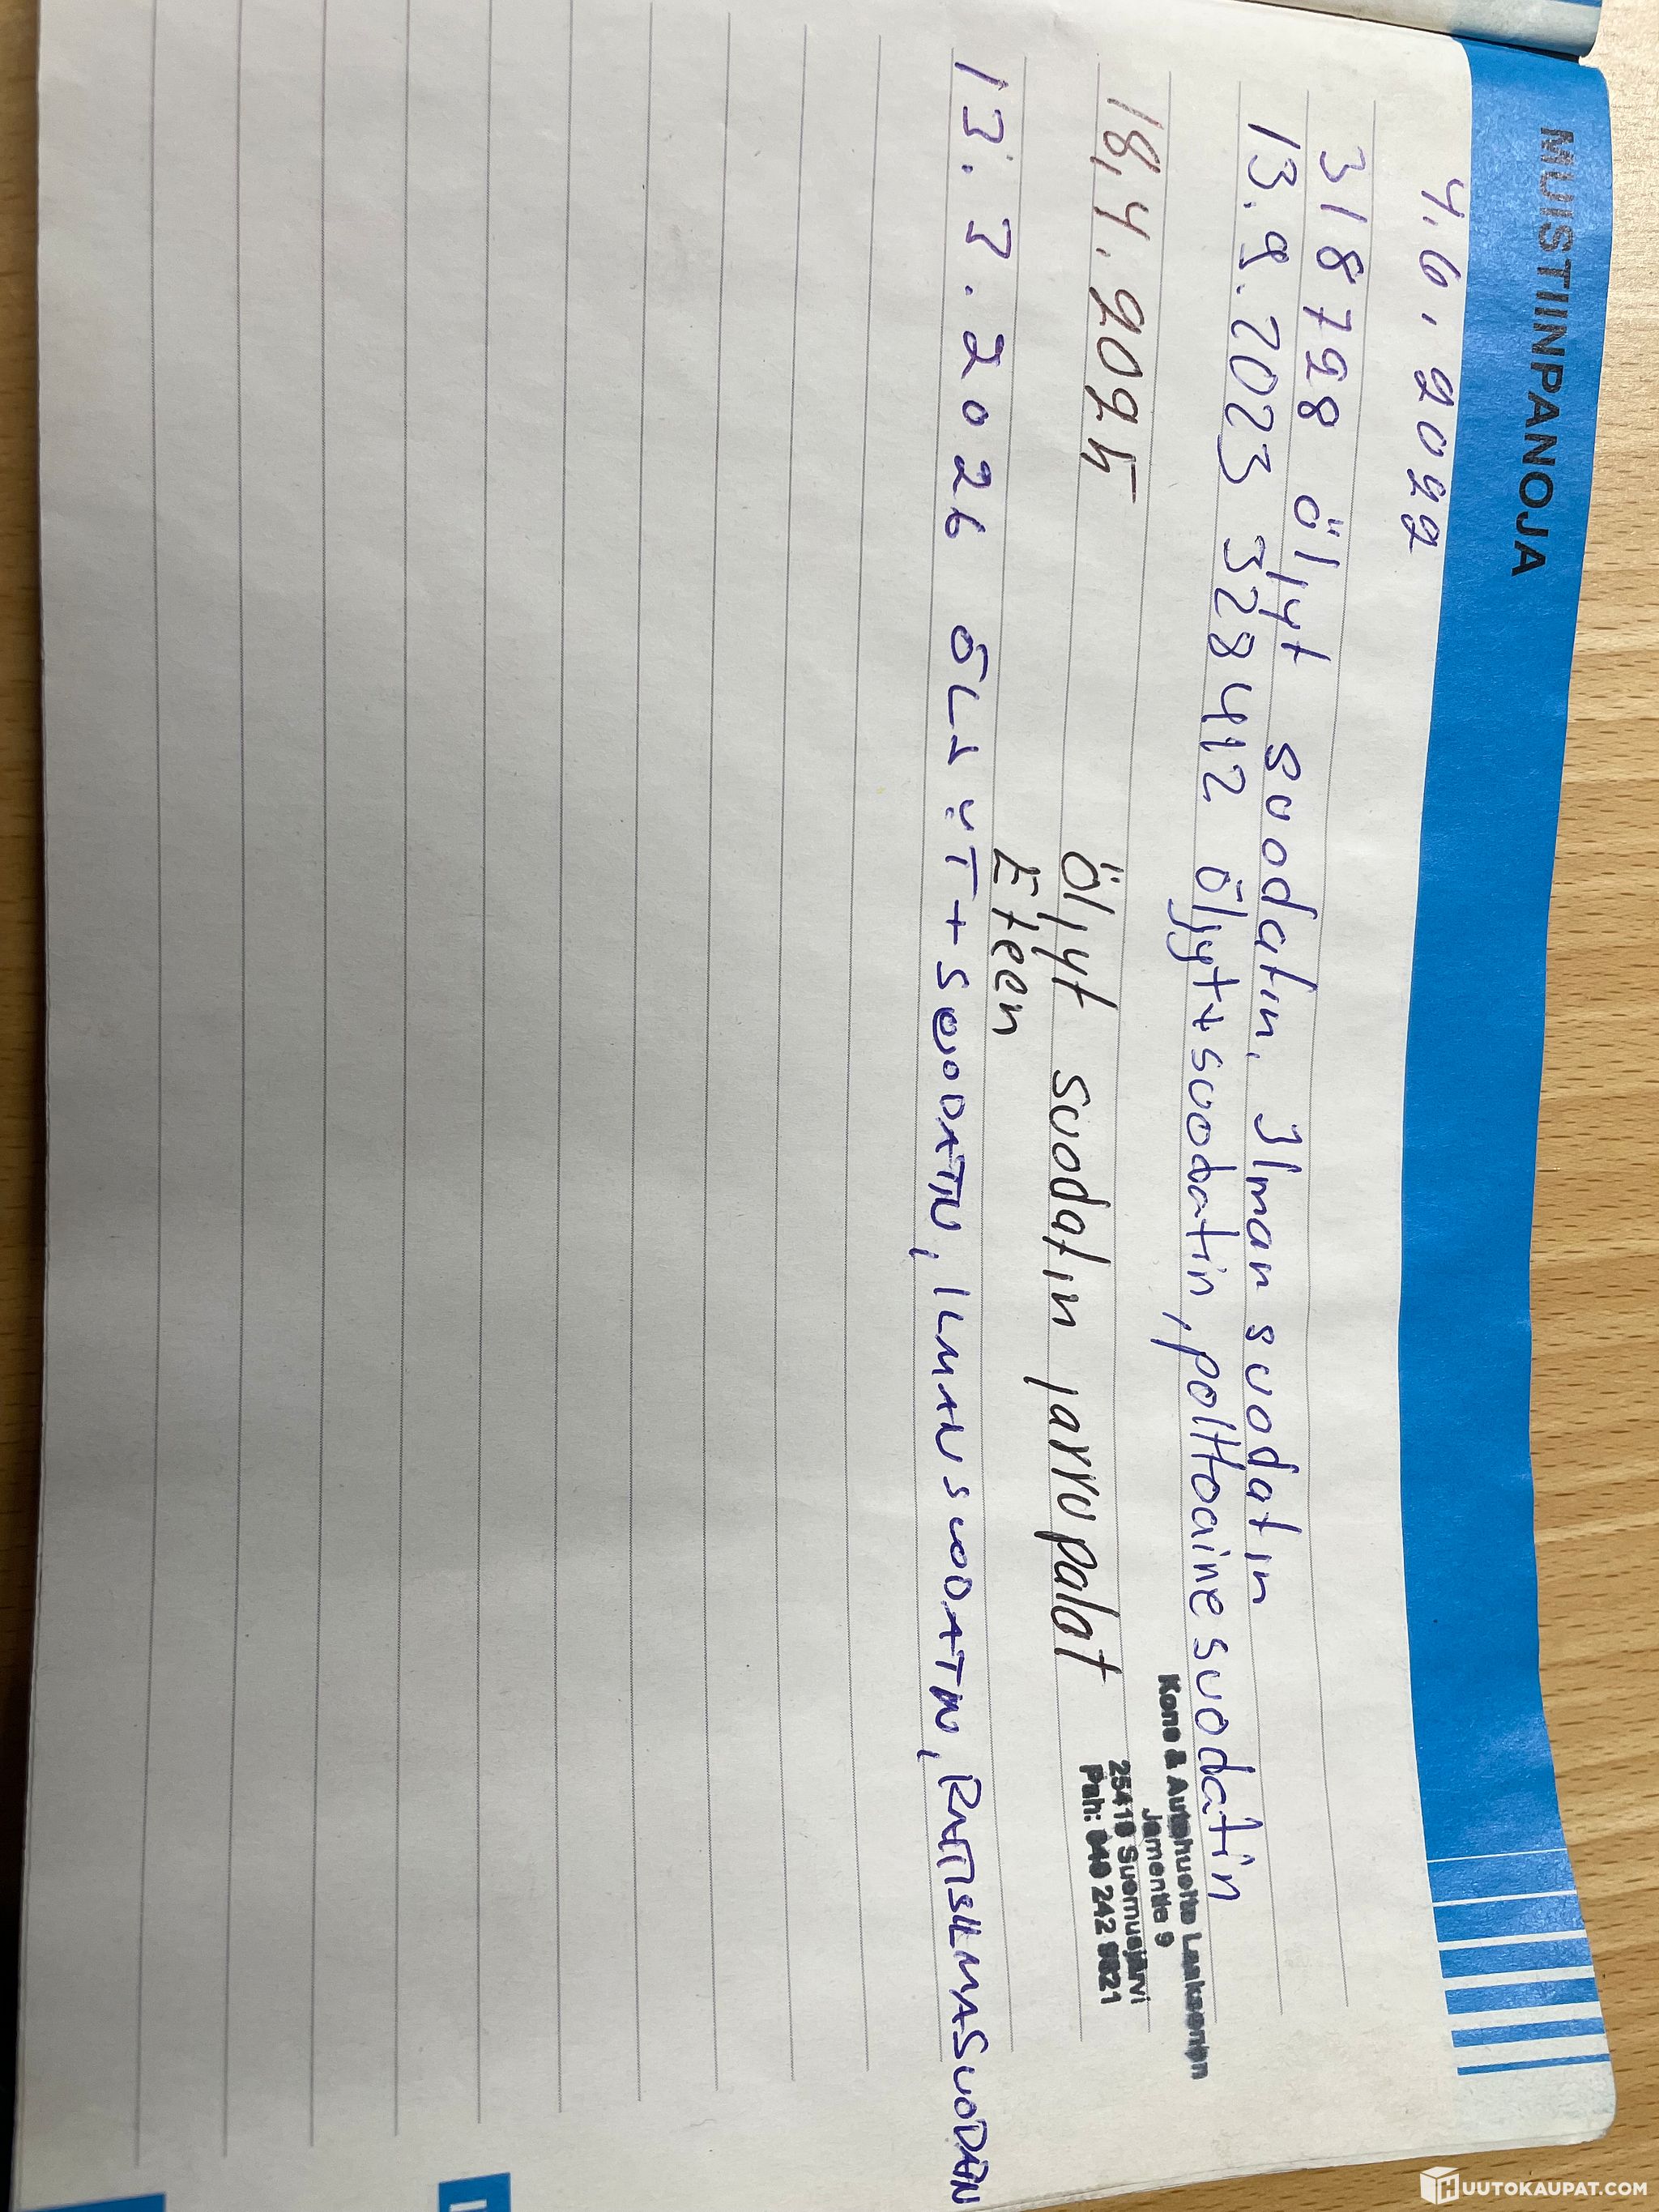 MUISTIINPANOJA
4.6.2022
318798 öljyt suodatin. Ilman suodatin
13.9.2023 328412 öljyt+suodatin, polttoainesuodatin
Kone & Autohuolto Laaksonen
Jamentie 9
25410 Suomusjärvi
Puh: 040 242 8821
18.4.2025 öljyt suodatin jarrupalat
Eteen
13.3.2026 ÖLJYT+SUODATIN, ILMANSUODATIN, RAITISILMASUODATIN
HUUTOKAUPAT.COM